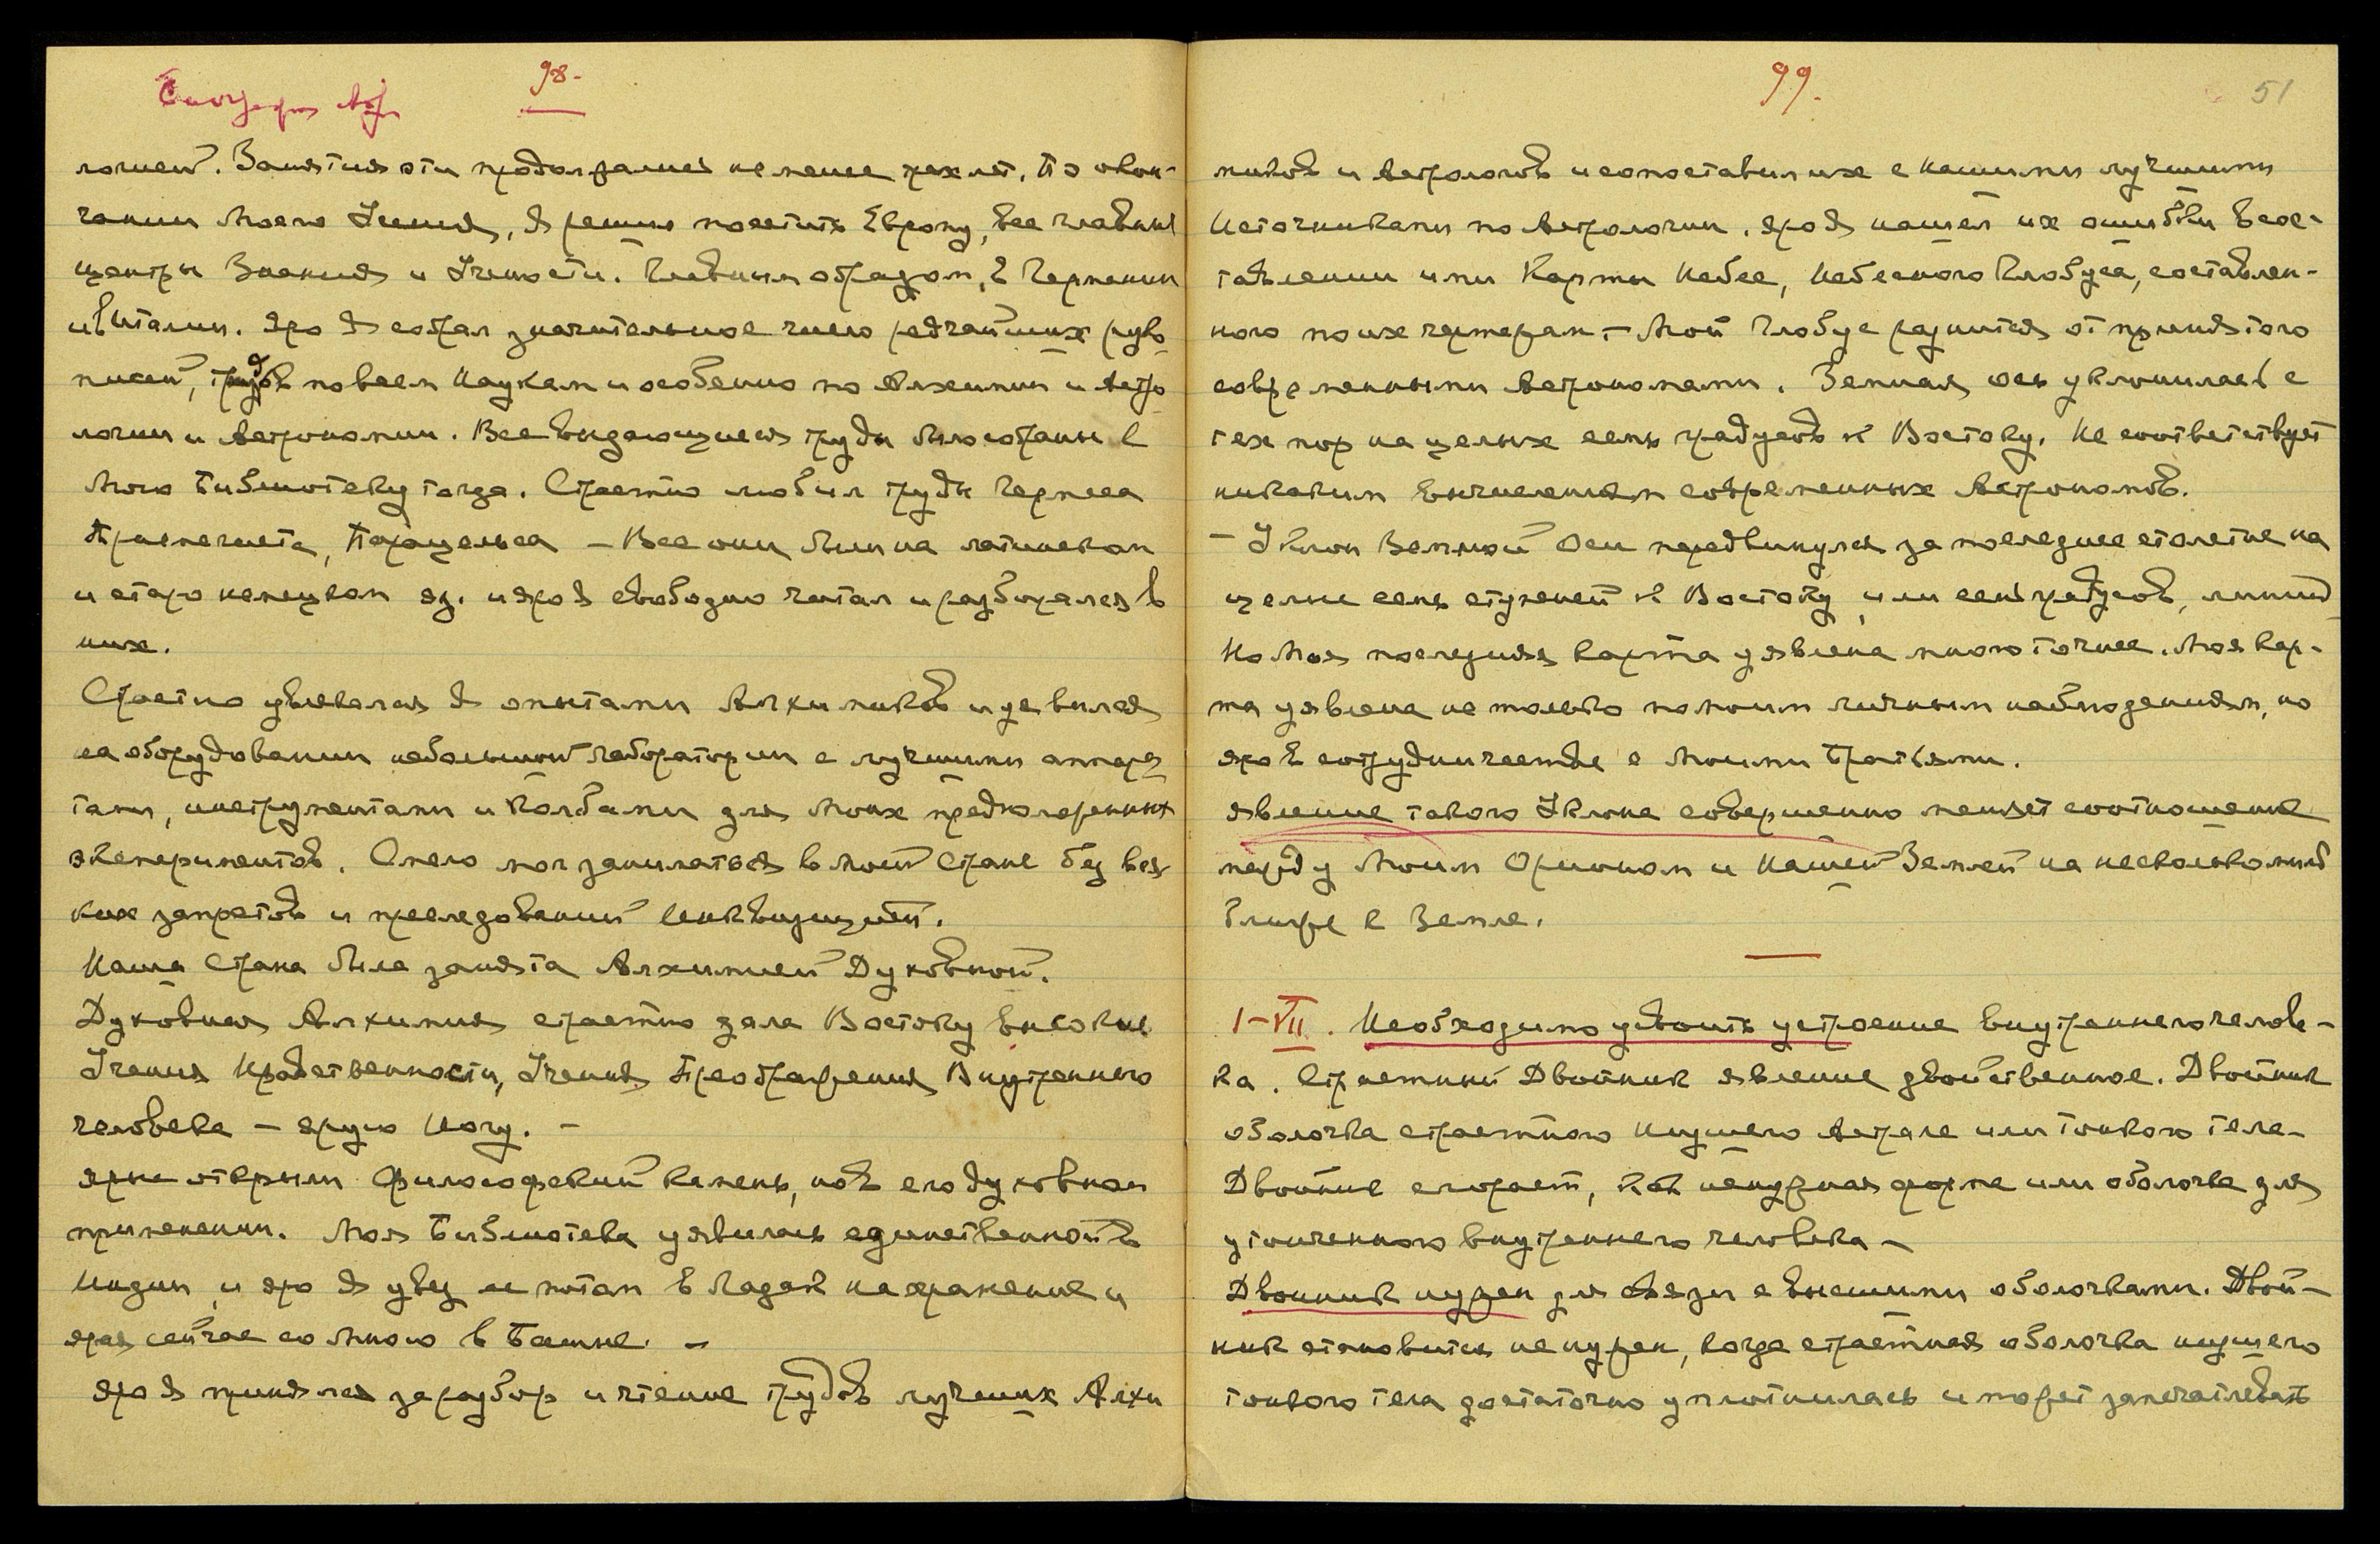 98.
логией. Занятия эти продолжались не менее трех лет. По окон-
чании Моего Учения, Я решил посетить Европу, все главные
центры Знания и Учености. Главным образом, в Германии
и в Италии. Яро Я собрал значительное число редчайших руко
писей, трудов по всем Наукам и особенно по Алхимии и Астро
логии и Астрономии. Все выдающиеся труды были собраны в
Мою Библиотеку тогда. Страстно любил труды Гермеса
Трисмегиста, Парацельса – Все они были на латинском
и старо немецком яз. и яро Я свободно читал и разбирался в
них.
Страстно увлекался Я опытами Алхимиков и
на оборудовании небольшой Лаборатории с лучшими аппара
тами, инструментами и Колбами для Моих предположенных
экспериментов. Смело мог заниматься в Моей Стране без вся
ких запретов и преследований Инквизицией.
Наша Страна была занята Алхимией Духовной.
Духовная Алхимия страстно дала Востоку высокие
Учения Нравственности, Учения Преображения Внутреннего
человека – ярую Йогу. –
Ярые открыли Философский камень, но в его духовном
применении. Моя Библиотека уявилась единственной в
Индии, и яро Я увез ее потом в Ладак на хранение и
ярая сейчас со Мною в Башне. –
Яро Я принялся за разбор и чтение трудов лучших Алхи
99.
51
миков и Астрологов и сопоставил их с нашими лучшими
Источниками по Астрологии, яро Я нашел их ошибки в сос-
тавлении ими Карты Небес, Небесного Глобуса, составлен-
ного по их чертежам. – Мой Глобус разнится от принятого
современными Астрономами. Земная ось уклонилась с
тех пор на целых семь градусов к Востоку. Не соответствует
никаким вычислениям современных Астрономов.
– Уклон Земной Оси передвинулся за последнее столетие на
целые семь ступеней к Востоку, или семь градусов,
Но Моя последняя карта уявлена много точнее. Моя кар-
та уявлена не только по моим личным наблюдениям, но
яро в сотрудничестве с Моими Братьями.
Явление такого Уклона совершенно меняет соотношение
между Моим Орионом и Нашей Землей на несколько
ближе к Земле.
1–VII. Необходимо усвоить устроение внутреннего челове-
ка. Страстный Двойник явление двойственное. Двойник
оболочка страстного низшего Астрала или тонкого тела –
Двойник сгорает, как ненужная форма или оболочка для
утонченного внутреннего человека –
Двойник нужен для связи с высшими оболочками. Двой-
ник становится не нужен, когда страстная оболочка низшего
тонкого тела достаточно уплотнилась и может запечатлевать